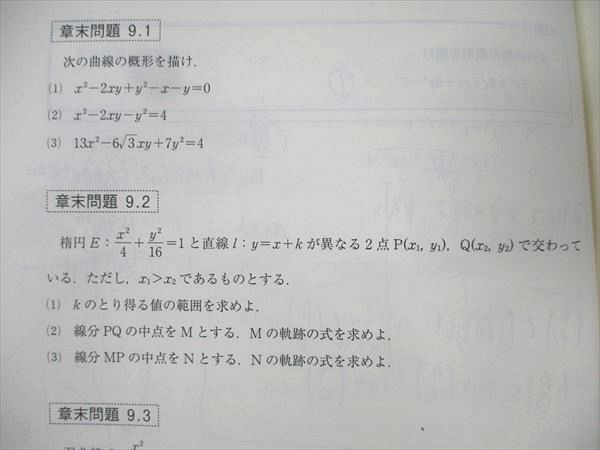 章末問題 9.1
次の曲線の概形を描け.
(1) x²−2xy+y²−x−y=0
(2) x²−2xy−y²=4
(3) 13x²−6√3xy+7y²=4
章末問題 9.2
楕円 E : x²/4+y²/16=1 と直線 l : y=x+k が異なる 2 点 P(x₁, y₁), Q(x₂, y₂) で交わって
いる. ただし, x₁>x₂ であるものとする.
(1) k のとり得る値の範囲を求めよ.
(2) 線分 PQ の中点を M とする. M の軌跡の式を求めよ.
(3) 線分 MP の中点を N とする. N の軌跡の式を求めよ.
章末問題 9.3